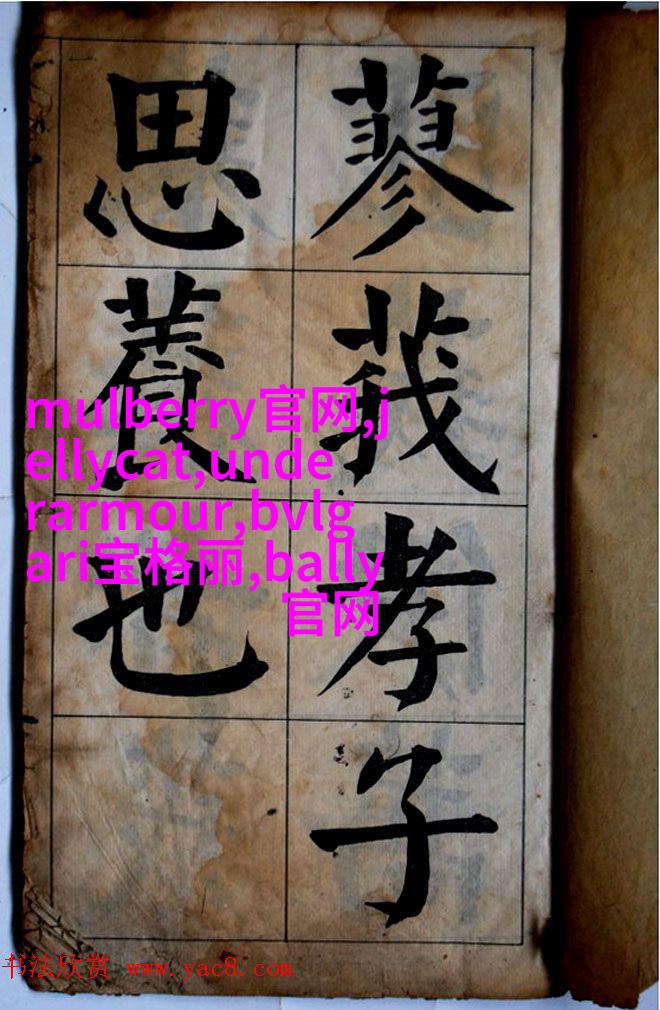 蓼莪孝子
思養也
mulberry官网,j
ellycat,unde
rarmour,bvlg
ari宝格丽,bally
官网
书法欣赏 www.yac8.com